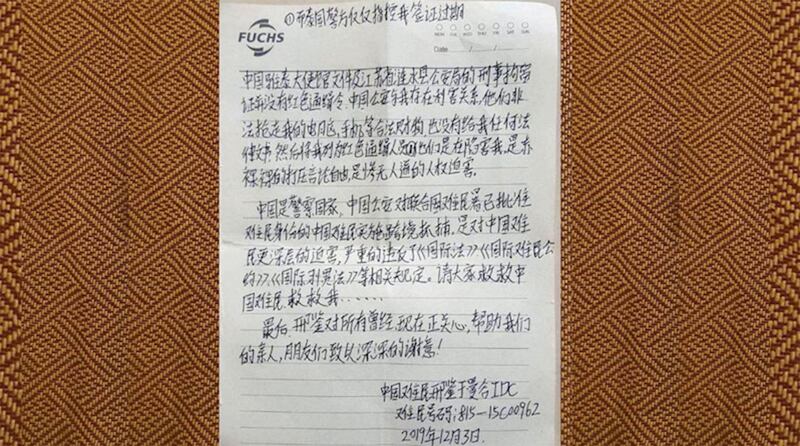 ①而泰国警方仅仅指控我签证过期
FUCHS
MON TUE WED THU FRI SAT SUN
Date / /
中国驻泰大使馆文件及江苏省涟水县公安局的刑事拘留
证我没有红色通缉令. 中国公安与我存在利害关系, 他们非
法抢走我的电脑, 手机等合法财物 也没有给我任何法
律文书. 然后将我列为红色通缉人员 他们是在陷害我, 是赤
裸裸的打压言论自由, 是惨无人道的人权迫害。
中国是警察国家, 中国公安对联合国难民署已批准
难民身份的中国难民实施跨境抓捕, 是对中国难
民更深层的迫害, 严重的违反了《国际法》、《国际难民公
约》、《国际刑罪法》等相关规定。请大家救救中
国难民 救救我......
最后, 邢鉴对所有曾经, 现在正关心, 帮助我们
的亲人, 朋友们致以深深的谢意!
中国难民邢鉴于曼谷IDC
难民号码: 815-15C00962
2019年12月3日.